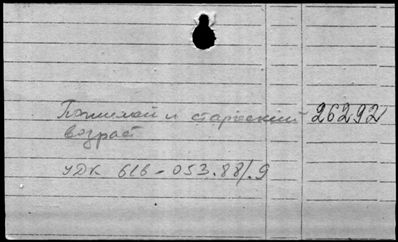 Пожилой и старческий 26292
возраст
УДК 616-053.88/.9